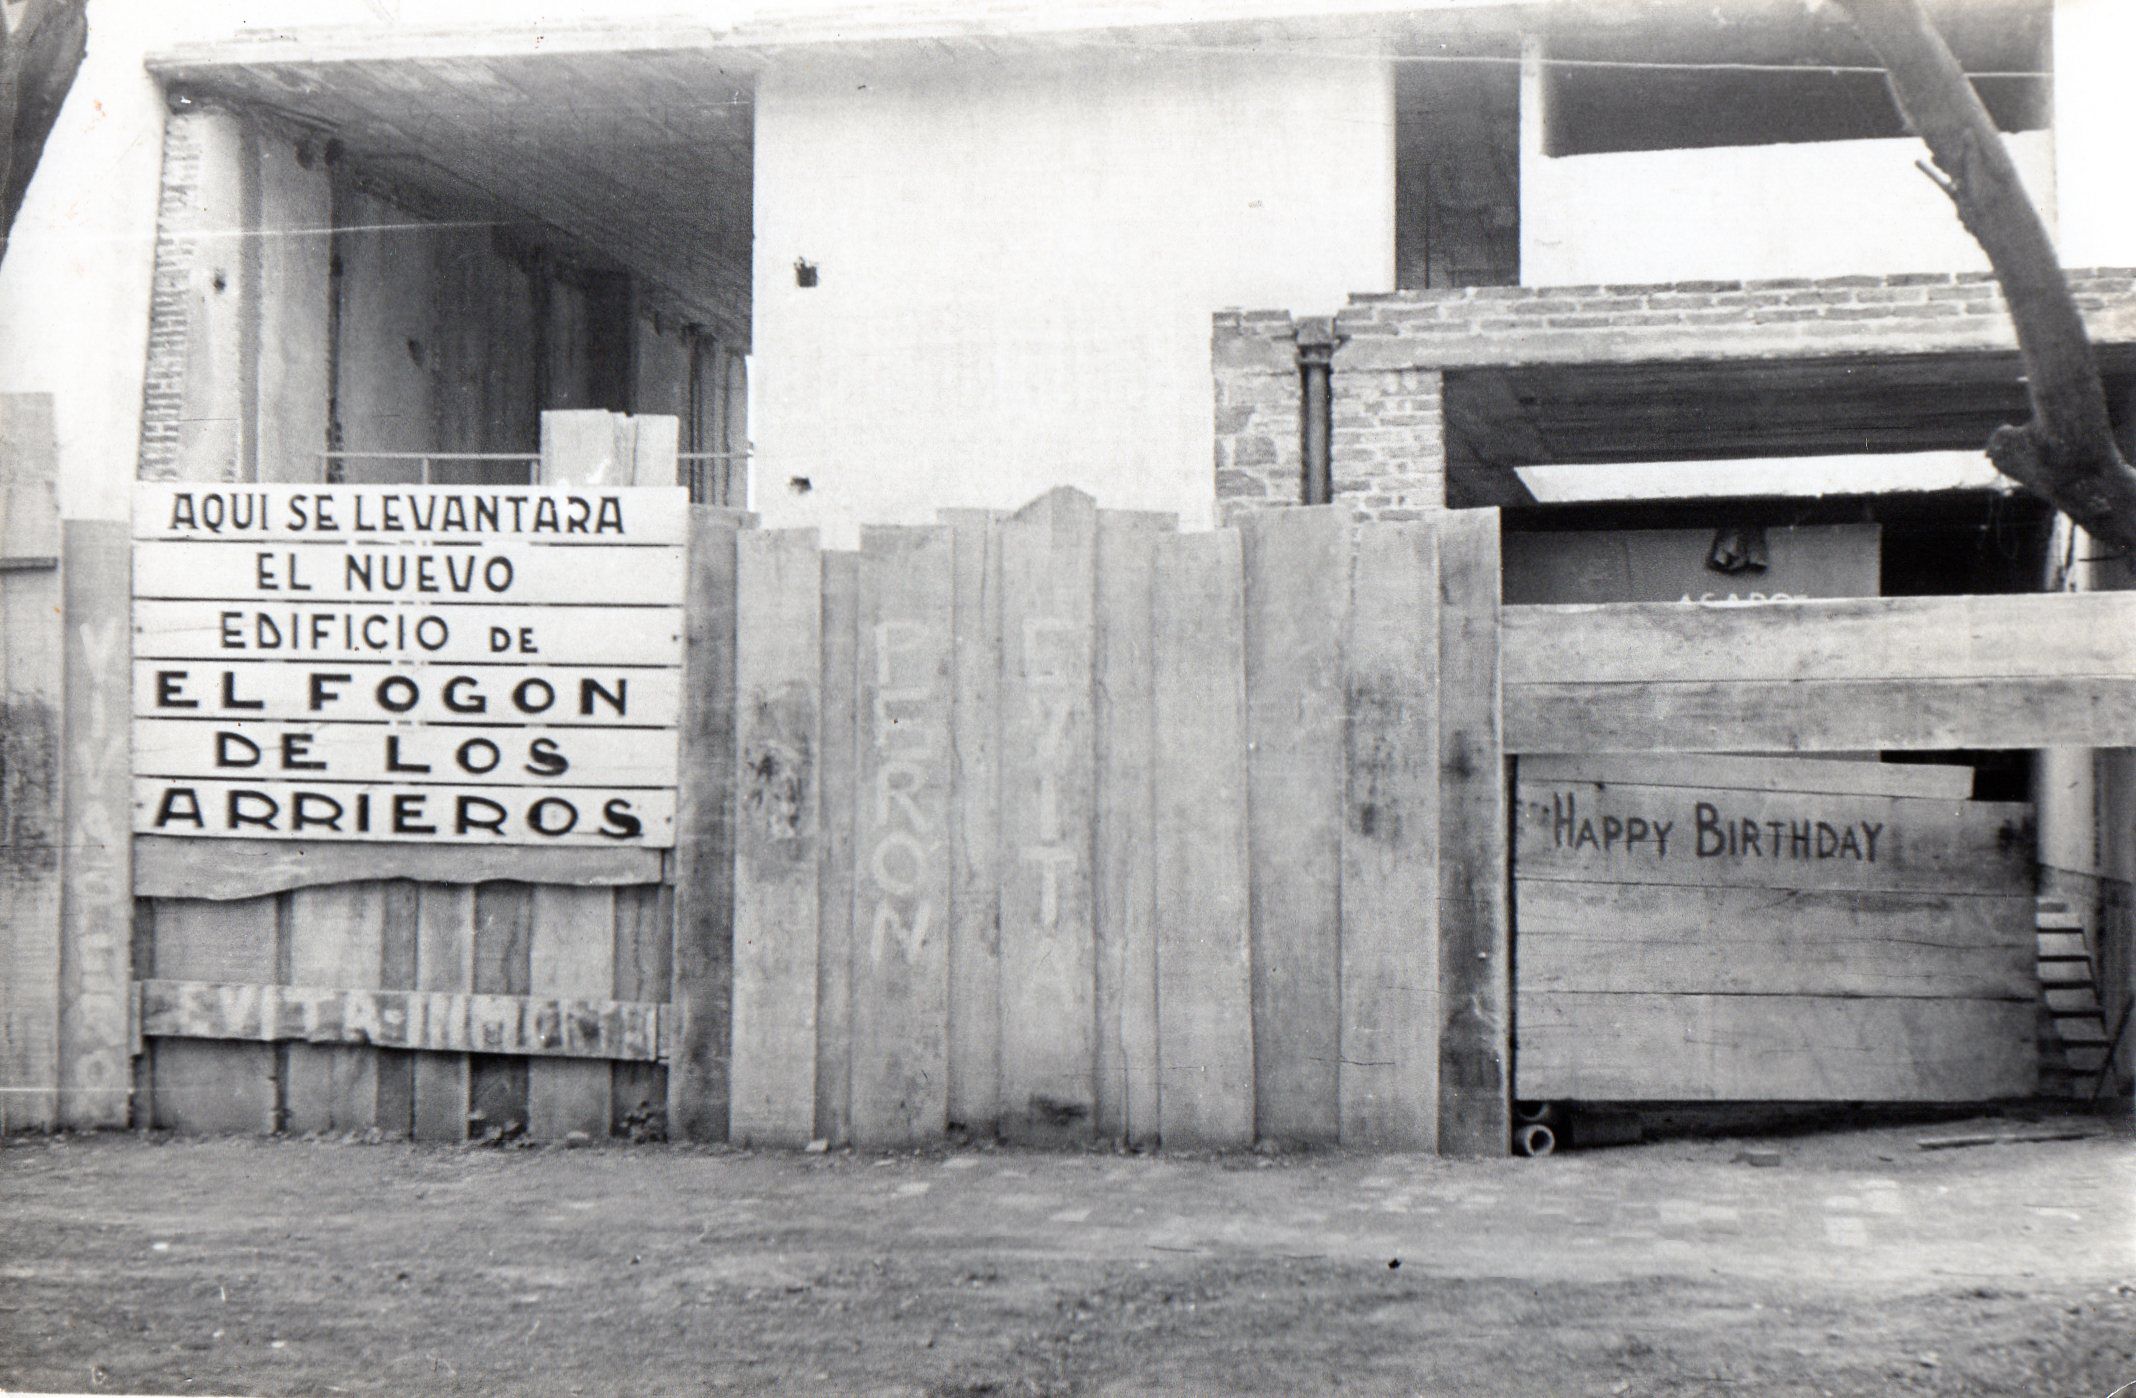 AQUI SE LEVANTARA
EL NUEVO
EDIFICIO DE
EL FOGON
DE LOS
ARRIEROS
VIVA
PERÓN
EVITA
EVITA-INMORTAL
HAPPY BIRTHDAY